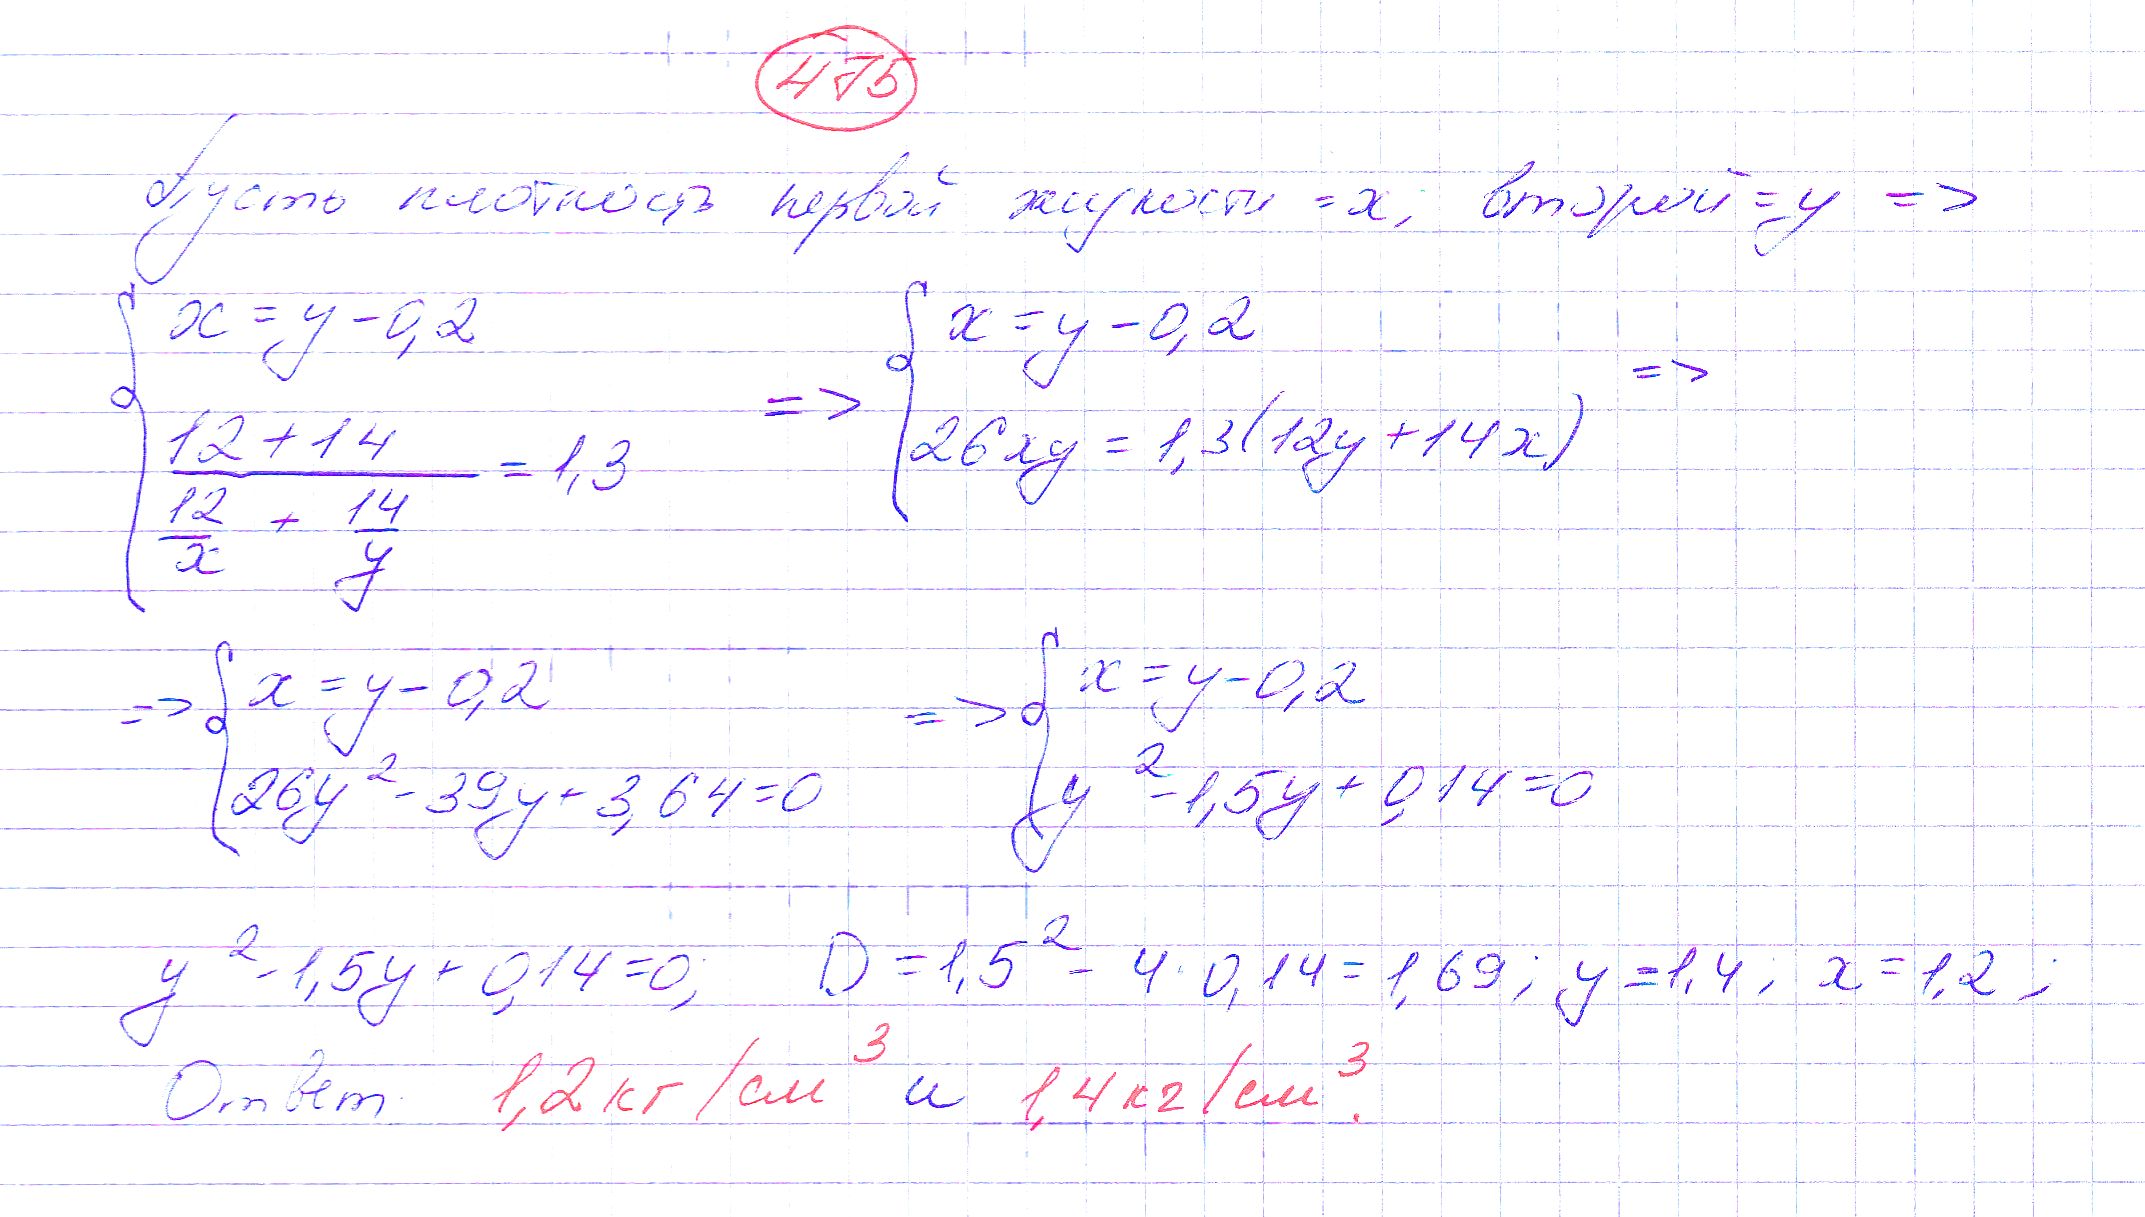 475
Пусть плотность первой жидкости = x; второй = y =>
{ x = y - 0,2
(12 + 14) / (12/x + 14/y) = 1,3
=> { x = y - 0,2
26xy = 1,3(12y + 14x) =>
=> { x = y - 0,2
26y² - 39y + 3,64 = 0
=> { x = y - 0,2
y² - 1,5y + 0,14 = 0
y² - 1,5y + 0,14 = 0; D = 1,5² - 4 · 0,14 = 1,69; y = 1,4; x = 1,2;
Ответ. 1,2 кг/см³ и 1,4 кг/см³.